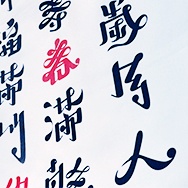 歲月人
壽春滿乾
福滿門